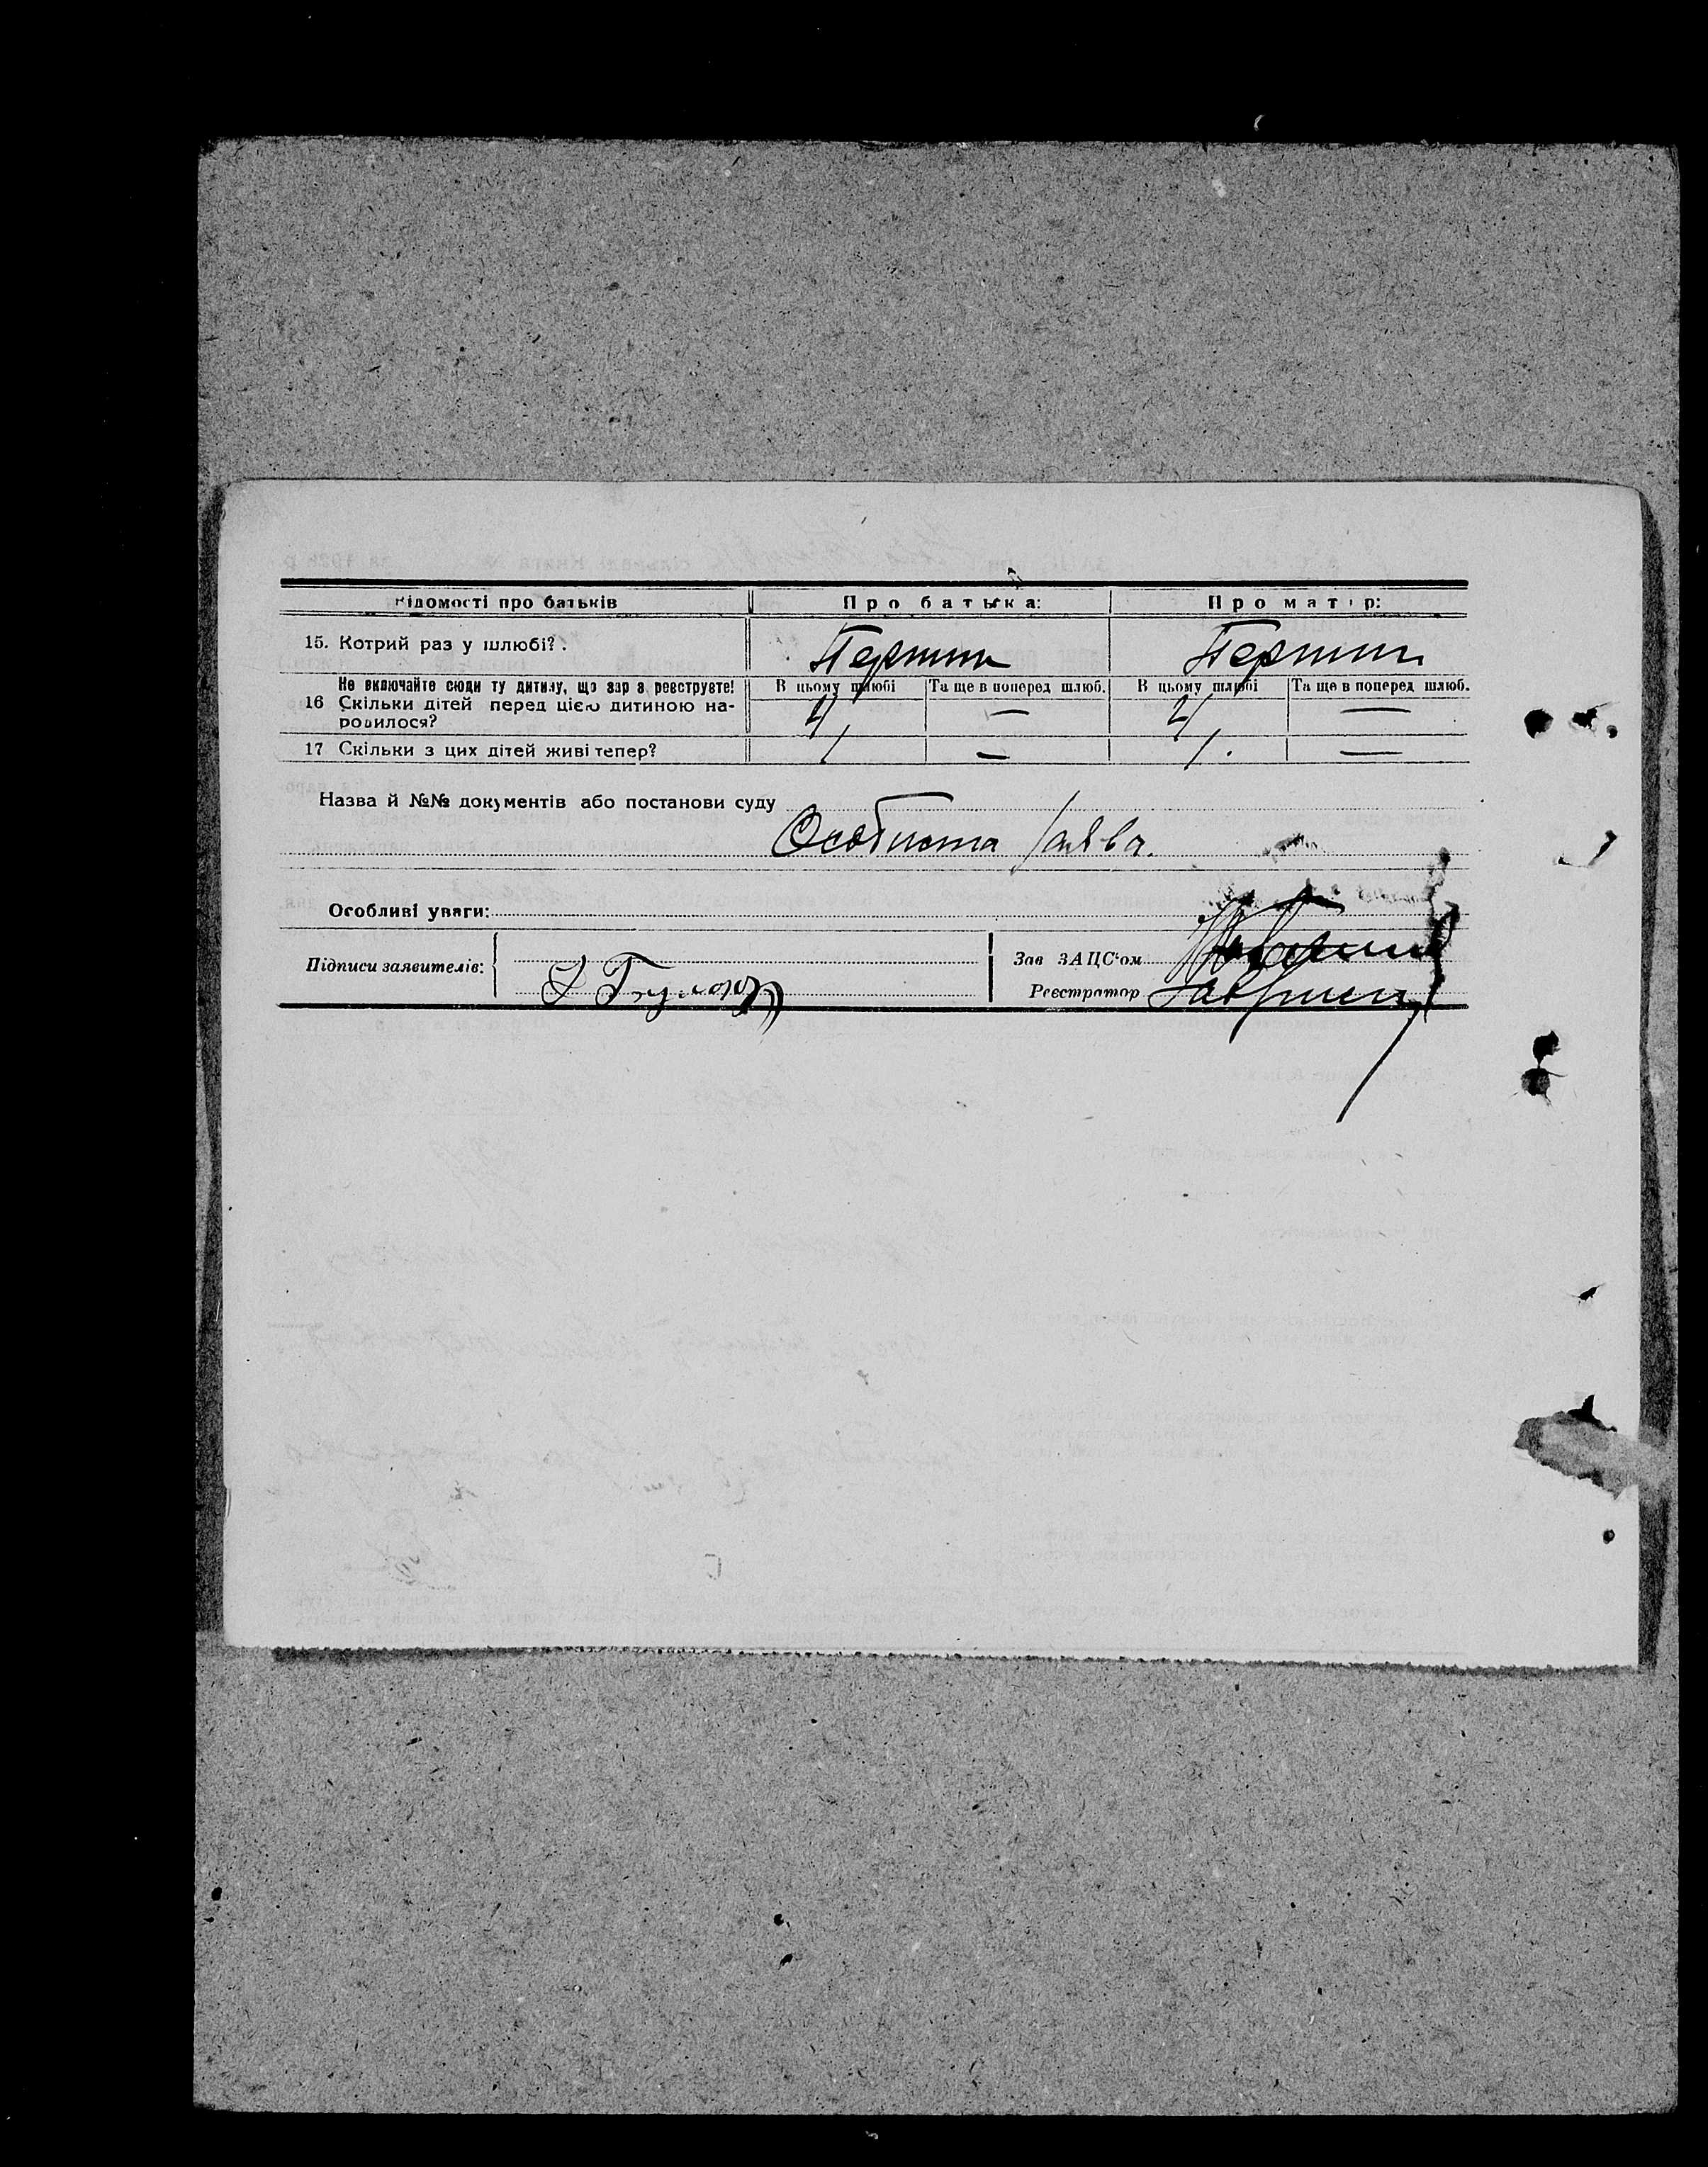 Відомості про батьків Про батька: Про матір:
15. Котрий раз у шлюбі? Перший Перший
Не включайте сюди ту дитину, що зараз реєструєте! В цьому шлюбі Та ще в поперед шлюб. В цьому шлюбі Та ще в поперед шлюб.
16 Скільки дітей перед цією дитиною на-
родилося? — —
17 Скільки з цих дітей живі тепер? 1 — 1. —
Назва й №№ документів або постанови суду
Особиста заява.
Особливі уваги:
Підписи заявителів: Зав ЗАЦС'ом
Реєстратор